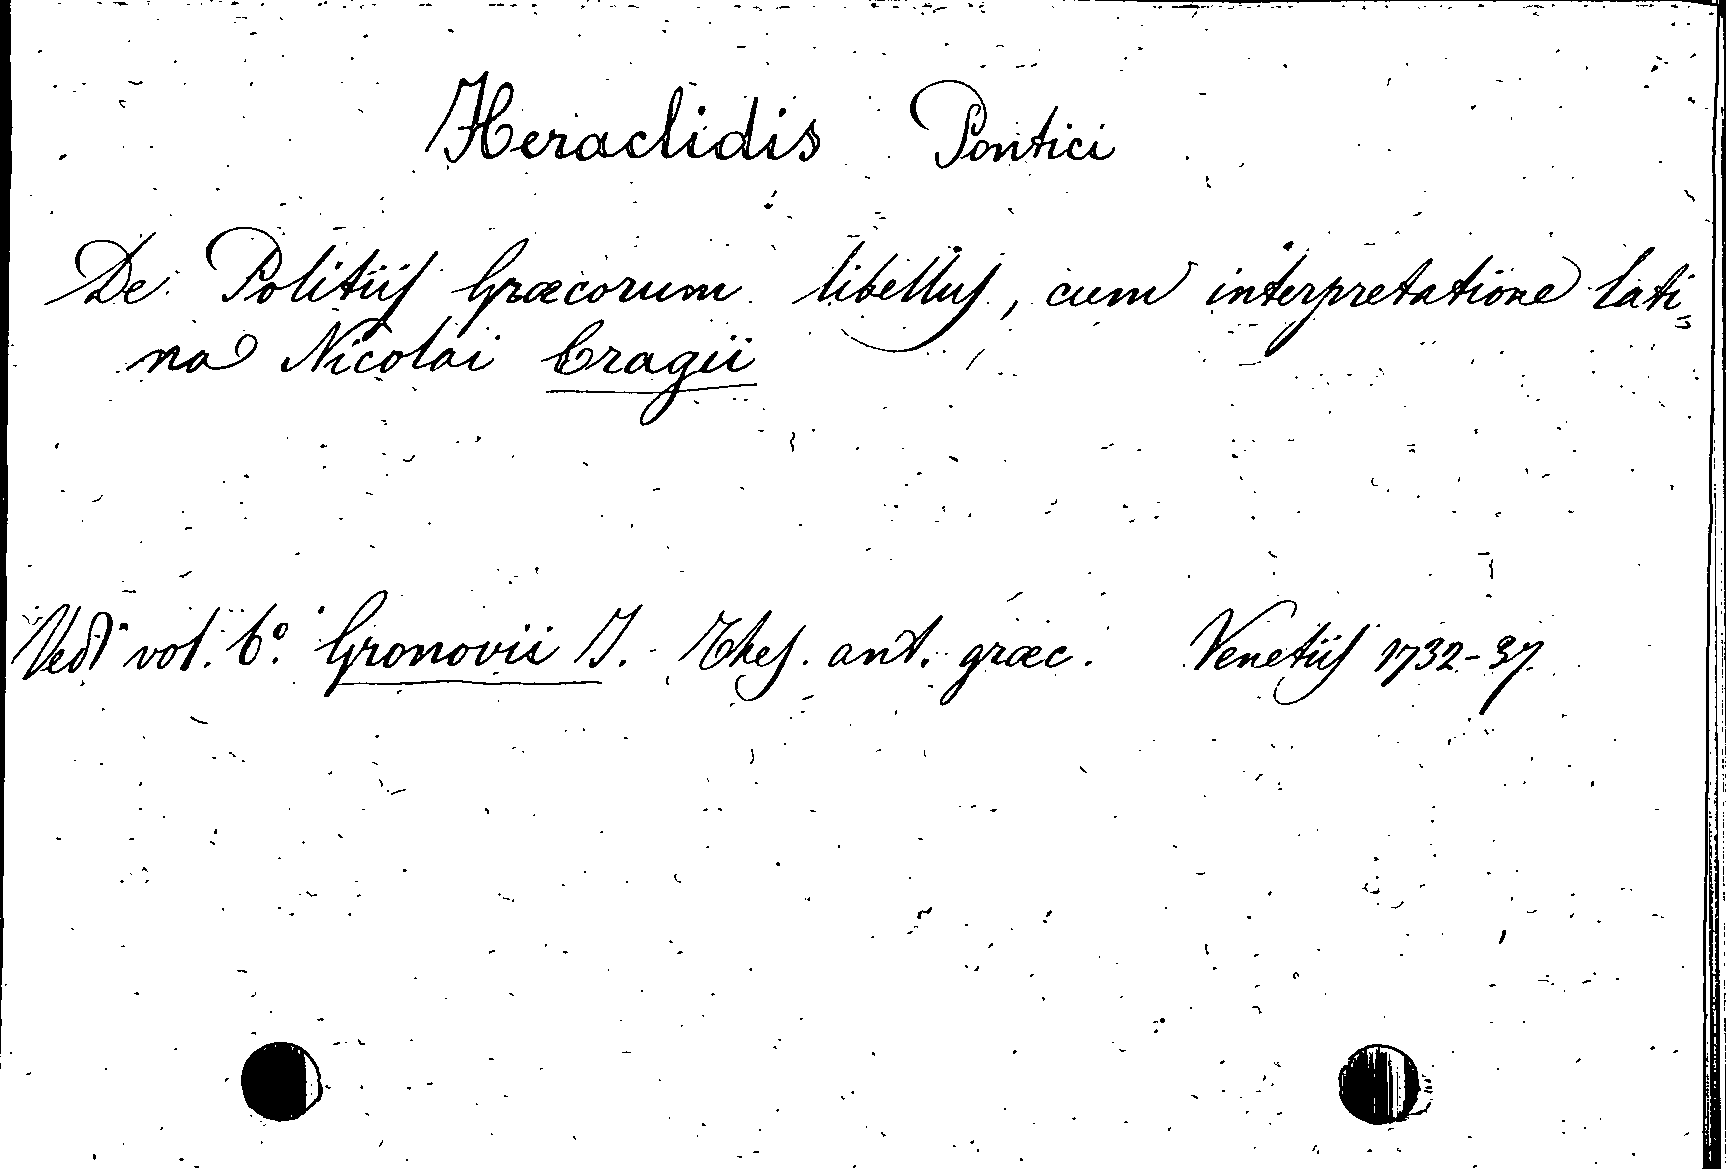 Heraclidis Pontici
De Politiis Græcorum libellus, cum interpretatione lati=
na Nicolai Cragii
Vedi vol. 6º. Gronovii J. Thes. ant. græc. Venetiis 1732-37.